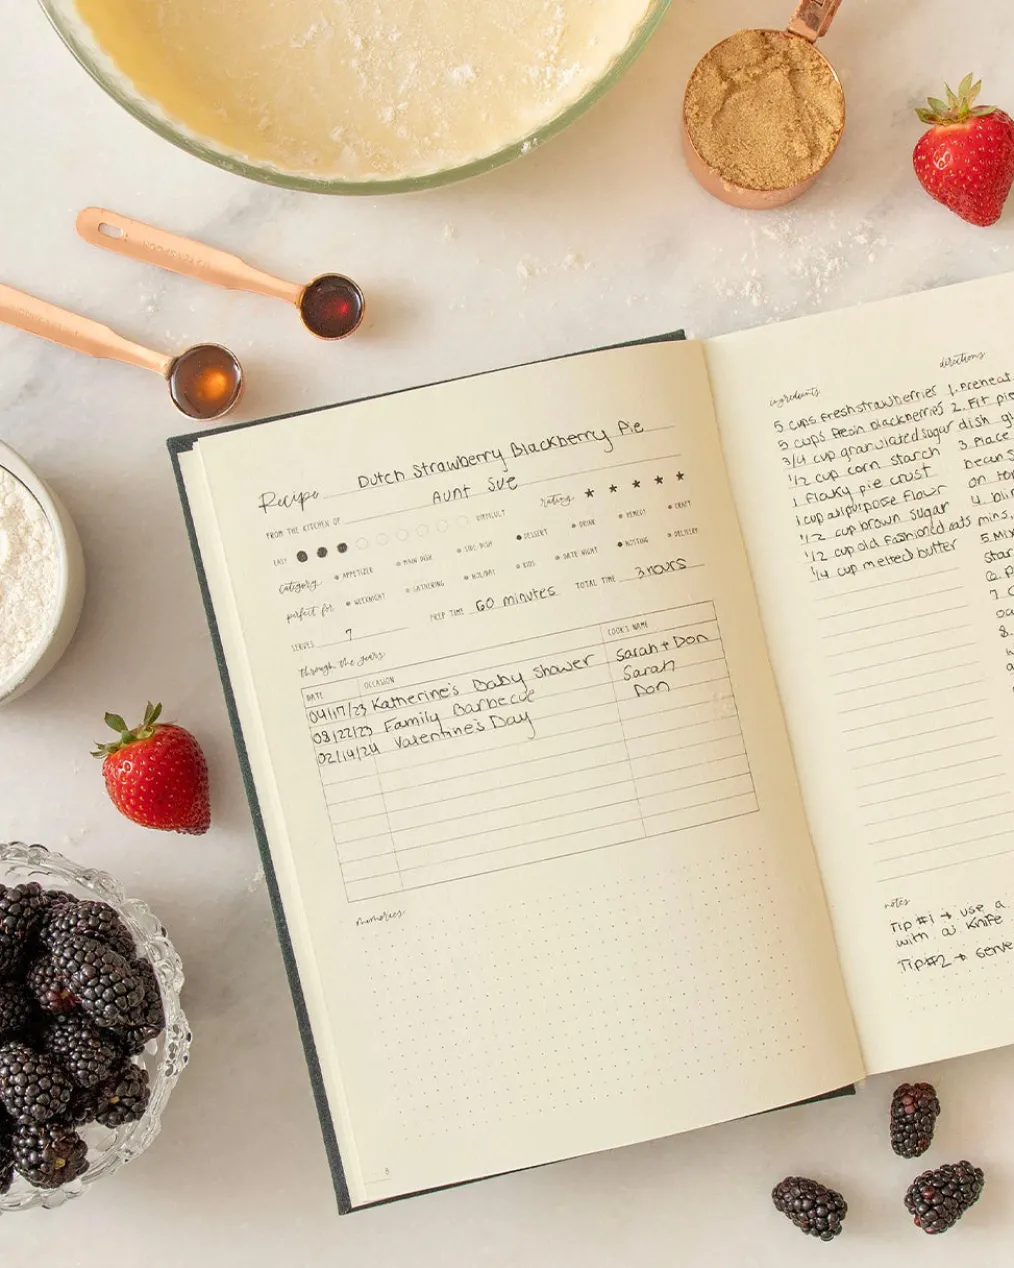 Recipe Dutch Strawberry Blackberry Pie
FROM THE KITCHEN OF Aunt Sue
EASY DIFFICULT rating
category APPETIZER MAIN DISH SIDE DISH DESSERT DRINK REMEDY CRAFT
perfect for WEEKNIGHT GATHERING HOLIDAY KIDS DATE NIGHT HOSTING DELIVERY
SERVES 7 PREP TIME 60 minutes TOTAL TIME 3 hours
through the years
DATE OCCASION COOK'S NAME
04/17/23 Katherine's Baby Shower Sarah + Don
08/22/23 Family Barbecue Sarah
02/14/24 Valentine's Day Don
memories
ingredients
5 cups fresh strawberries
5 cups fresh blackberries
3/4 cup granulated sugar
1/2 cup corn starch
1 flaky pie crust
1 cup all purpose flour
1/2 cup brown sugar
1/2 cup old fashioned oats
1/4 cup melted butter
directions
1. Preheat
2. Fit pie
dish
3. Place
bean
on top
4.
mins,
5. Mix
6.
7.
8.
notes
Tip #1 → use a
with a knife
Tip #2 → serve